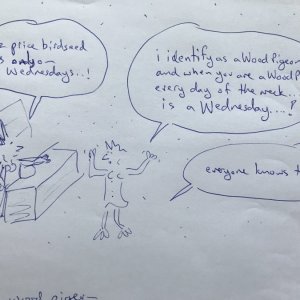 price birdseed
only
Wednesdays..!
i identify as a Wood Pigeon
and when you are a Wood
every day of the week..
is a Wednesday....!
everyone knows
wood